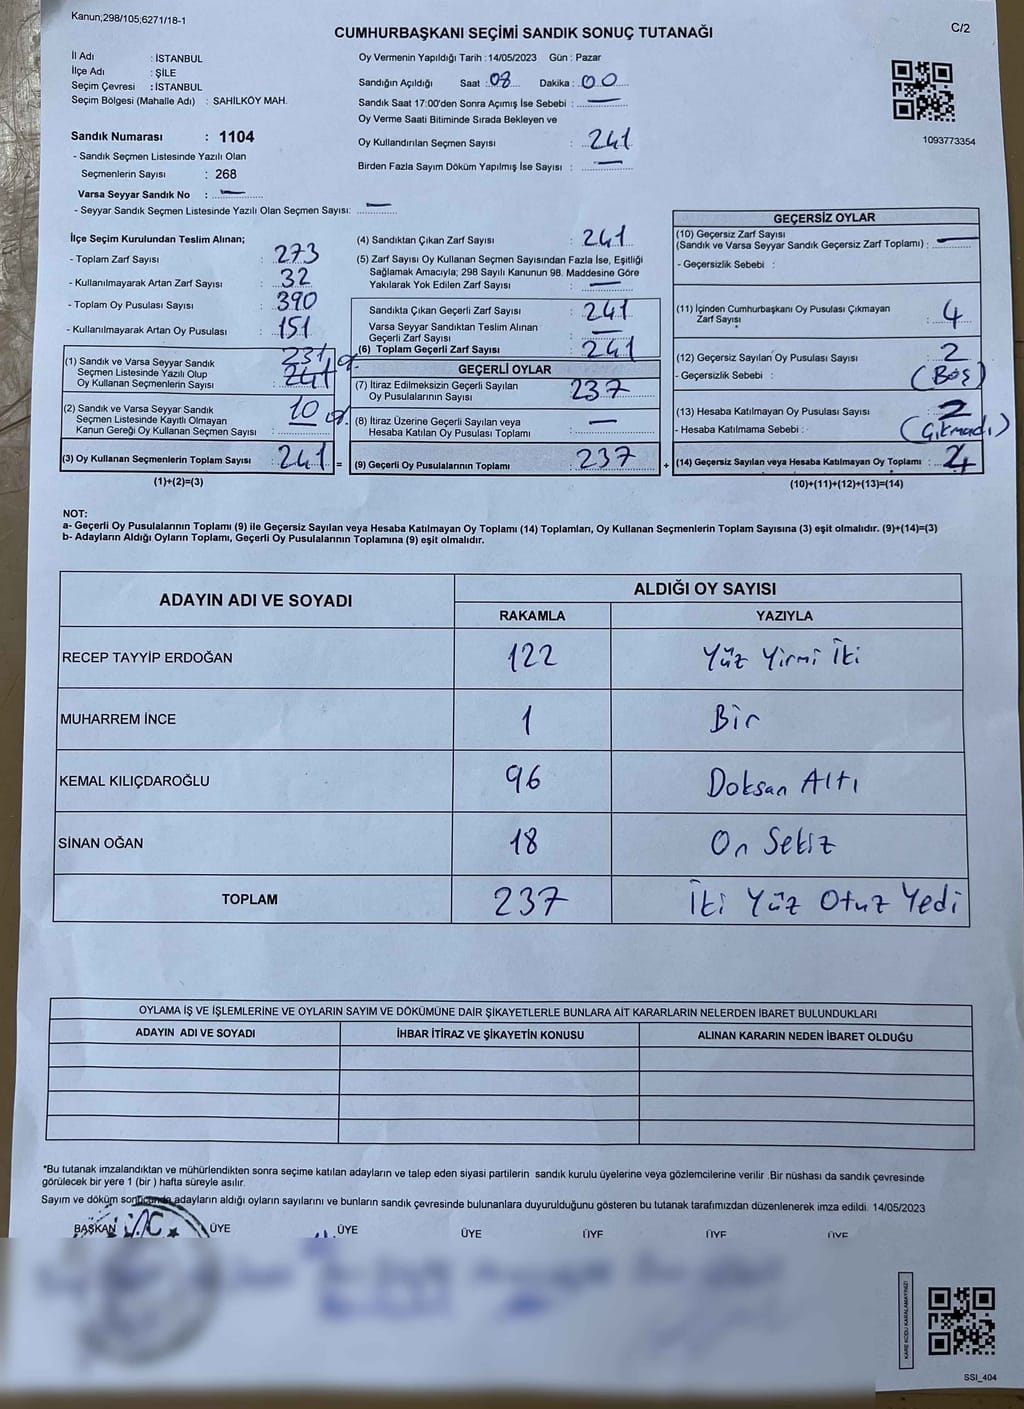 Kanun;298/105;6271/18-1
C/2
CUMHURBAŞKANI SEÇİMİ SANDIK SONUÇ TUTANAĞI
İl Adı : İSTANBUL
İlçe Adı : ŞİLE
Seçim Çevresi : İSTANBUL
Seçim Bölgesi (Mahalle Adı) : SAHİLKÖY MAH.
Sandık Numarası : 1104
- Sandık Seçmen Listesinde Yazılı Olan
Seçmenlerin Sayısı : 268
Varsa Seyyar Sandık No : —
- Seyyar Sandık Seçmen Listesinde Yazılı Olan Seçmen Sayısı: —
Oy Vermenin Yapıldığı Tarih : 14/05/2023 Gün : Pazar
Sandığın Açıldığı Saat : 08 Dakika : 00
Sandık Saat 17:00'den Sonra Açımış İse Sebebi : —
Oy Verme Saati Bitiminde Sırada Bekleyen ve
Oy Kullandırılan Seçmen Sayısı : 241
Birden Fazla Sayım Döküm Yapılmış İse Sayısı : —
1093773354
İlçe Seçim Kurulundan Teslim Alınan;
- Toplam Zarf Sayısı : 273
- Kullanılmayarak Artan Zarf Sayısı : 32
- Toplam Oy Pusulası Sayısı : 390
- Kullanılmayarak Artan Oy Pusulası : 151
(1) Sandık ve Varsa Seyyar Sandık 231
Seçmen Listesinde Yazılı Olup 241
Oy Kullanan Seçmenlerin Sayısı :
(2) Sandık ve Varsa Seyyar Sandık 10
Seçmen Listesinde Kayıtlı Olmayan
Kanun Gereği Oy Kullanan Seçmen Sayısı :
(3) Oy Kullanan Seçmenlerin Toplam Sayısı : 241 =
(1)+(2)=(3)
(4) Sandıktan Çıkan Zarf Sayısı : 241
(5) Zarf Sayısı Oy Kullanan Seçmen Sayısından Fazla İse, Eşitliği
Sağlamak Amacıyla; 298 Sayılı Kanunun 98. Maddesine Göre
Yakılarak Yok Edilen Zarf Sayısı : —
Sandıkta Çıkan Geçerli Zarf Sayısı : 241
Varsa Seyyar Sandıktan Teslim Alınan
Geçerli Zarf Sayısı : —
(6) Toplam Geçerli Zarf Sayısı : 241
GEÇERLİ OYLAR
(7) İtiraz Edilmeksizin Geçerli Sayılan 237
Oy Pusulalarının Sayısı :
(8) İtiraz Üzerine Geçerli Sayılan veya —
Hesaba Katılan Oy Pusulası Toplamı :
(9) Geçerli Oy Pusulalarının Toplamı : 237 +
GEÇERSİZ OYLAR
(10) Geçersiz Zarf Sayısı
(Sandık ve Varsa Seyyar Sandık Geçersiz Zarf Toplamı) : —
- Geçersizlik Sebebi :
(11) İçinden Cumhurbaşkanı Oy Pusulası Çıkmayan 4
Zarf Sayısı :
(12) Geçersiz Sayılan Oy Pusulası Sayısı : 2
- Geçersizlik Sebebi : (Boş)
(13) Hesaba Katılmayan Oy Pusulası Sayısı : 2
- Hesaba Katılmama Sebebi : (Çıkmadı)
(14) Geçersiz Sayılan veya Hesaba Katılmayan Oy Toplamı : 4
(10)+(11)+(12)+(13)=(14)
NOT:
a- Geçerli Oy Pusulalarının Toplamı (9) ile Geçersiz Sayılan veya Hesaba Katılmayan Oy Toplamı (14) Toplamları, Oy Kullanan Seçmenlerin Toplam Sayısına (3) eşit olmalıdır. (9)+(14)=(3)
b- Adayların Aldığı Oyların Toplamı, Geçerli Oy Pusulalarının Toplamına (9) eşit olmalıdır.
ADAYIN ADI VE SOYADI
ALDIĞI OY SAYISI
RAKAMLA YAZIYLA
RECEP TAYYİP ERDOĞAN 122 Yüz Yirmi İki
MUHARREM İNCE 1 Bir
KEMAL KILIÇDAROĞLU 96 Doksan Altı
SİNAN OĞAN 18 On Sekiz
TOPLAM 237 İki Yüz Otuz Yedi
OYLAMA İŞ VE İŞLEMLERİNE VE OYLARIN SAYIM VE DÖKÜMÜNE DAİR ŞİKAYETLERLE BUNLARA AİT KARARLARIN NELERDEN İBARET BULUNDUKLARI
ADAYIN ADI VE SOYADI İHBAR İTİRAZ VE ŞİKAYETİN KONUSU ALINAN KARARIN NEDEN İBARET OLDUĞU
*Bu tutanak imzalandıktan ve mühürlendikten sonra seçime katılan adayların ve talep eden siyasi partilerin sandık kurulu üyelerine veya gözlemcilerine verilir. Bir nüshası da sandık çevresinde
görülecek bir yere 1 (bir ) hafta süreyle asılır.
Sayım ve döküm sonucunda adayların aldığı oyların sayılarını ve bunların sandık çevresinde bulunanlara duyurulduğunu gösteren bu tutanak tarafımızdan düzenlenerek imza edildi. 14/05/2023
BAŞKAN ÜYE ÜYE ÜYE ÜYE ÜYE ÜYE
KARE KODU KARALAMAYINIZ!
SSI_404